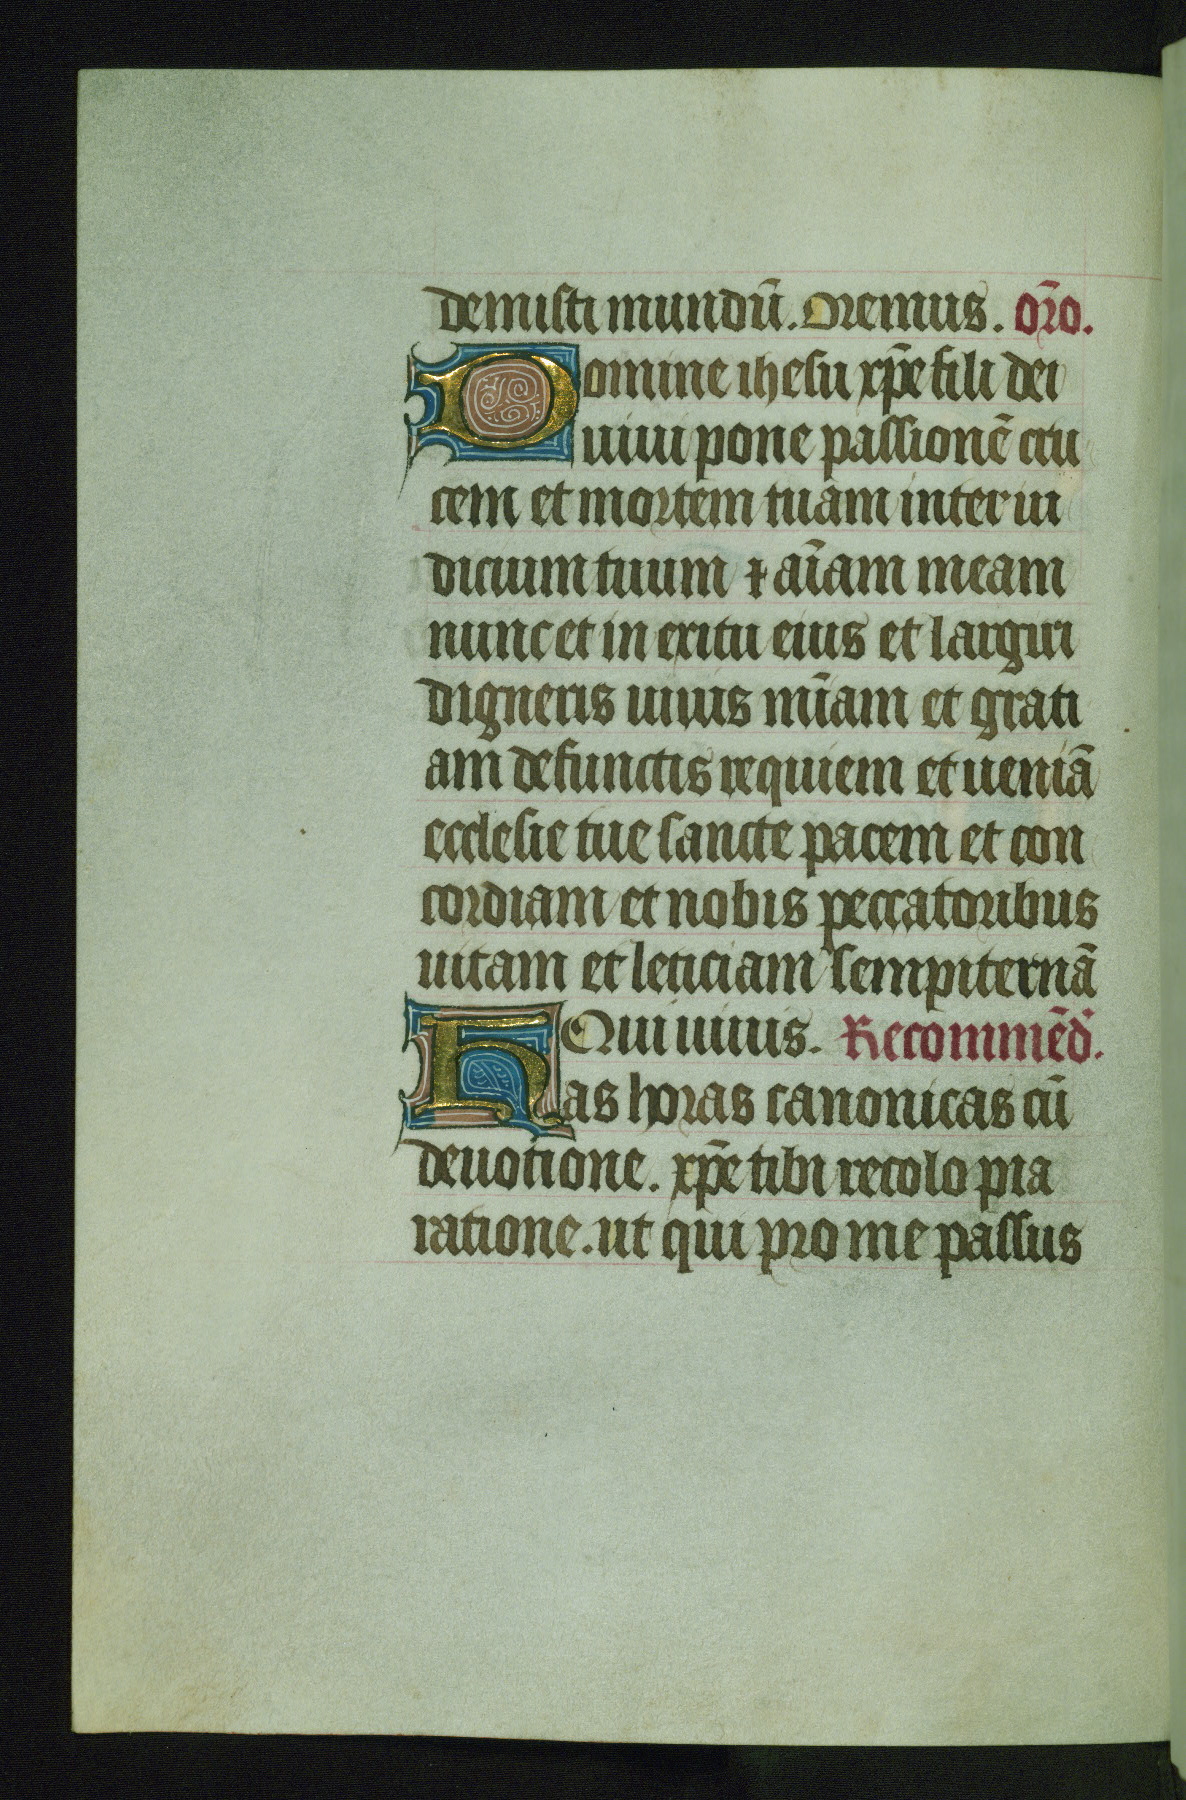 demisti mundū. Oremus. or̄o.
Domine ihesu xp̄e fili dei
uiui pone passionē cru
cem et mortem tuam inter iu
dicium tuum ⁊ aīam meam
nunc et in exitu eius et largiri
digneris uiuis mīam et grati
am defunctis requiem et ueniā
ecclesie tue sancte pacem et con
cordiam et nobis peccatoribus
uitam et leticiam sempiternā
Qui uiuis. Recommēd̄.
Has horas canonicas cū
deuotione. xp̄e tibi recolo pia
ratione. ut qui pro me passus